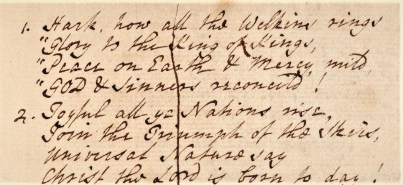 1. Hark, how all the Welkin rings
"Glory to the King of Kings,
"Peace on Earth & Mercy mild,
"GOD & Sinners reconcil'd!
2. Joyful all ye Nations rise,
Join the Triumph of the Skies,
Universal Nature say
Christ the Lord is born to day!